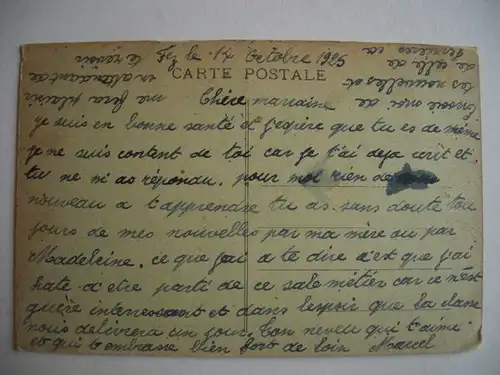 Fez le 12 Octobre 1925
CARTE POSTALE
Chère marraine
je suis en bonne santé et j'espère que tu es de même
je ne suis contant de toi car je t'ai deja ecrit et
tu ne m'as répondu. pour moi rien de
nouveau a t'apprendre tu as sans doute tou
jours de mes nouvelles par ma mère ou par
Madeleine. ce que j'ai a te dire c'est que j'ai
hate d'etre parti de ce sale métier car ce n'est
guère interressant et dans l'espoir que la classe
nous delivrera un jour. Ton neveu qui t'aime
et qui t'embrasse bien fort de loin Marcel
en attendant de
te revoir